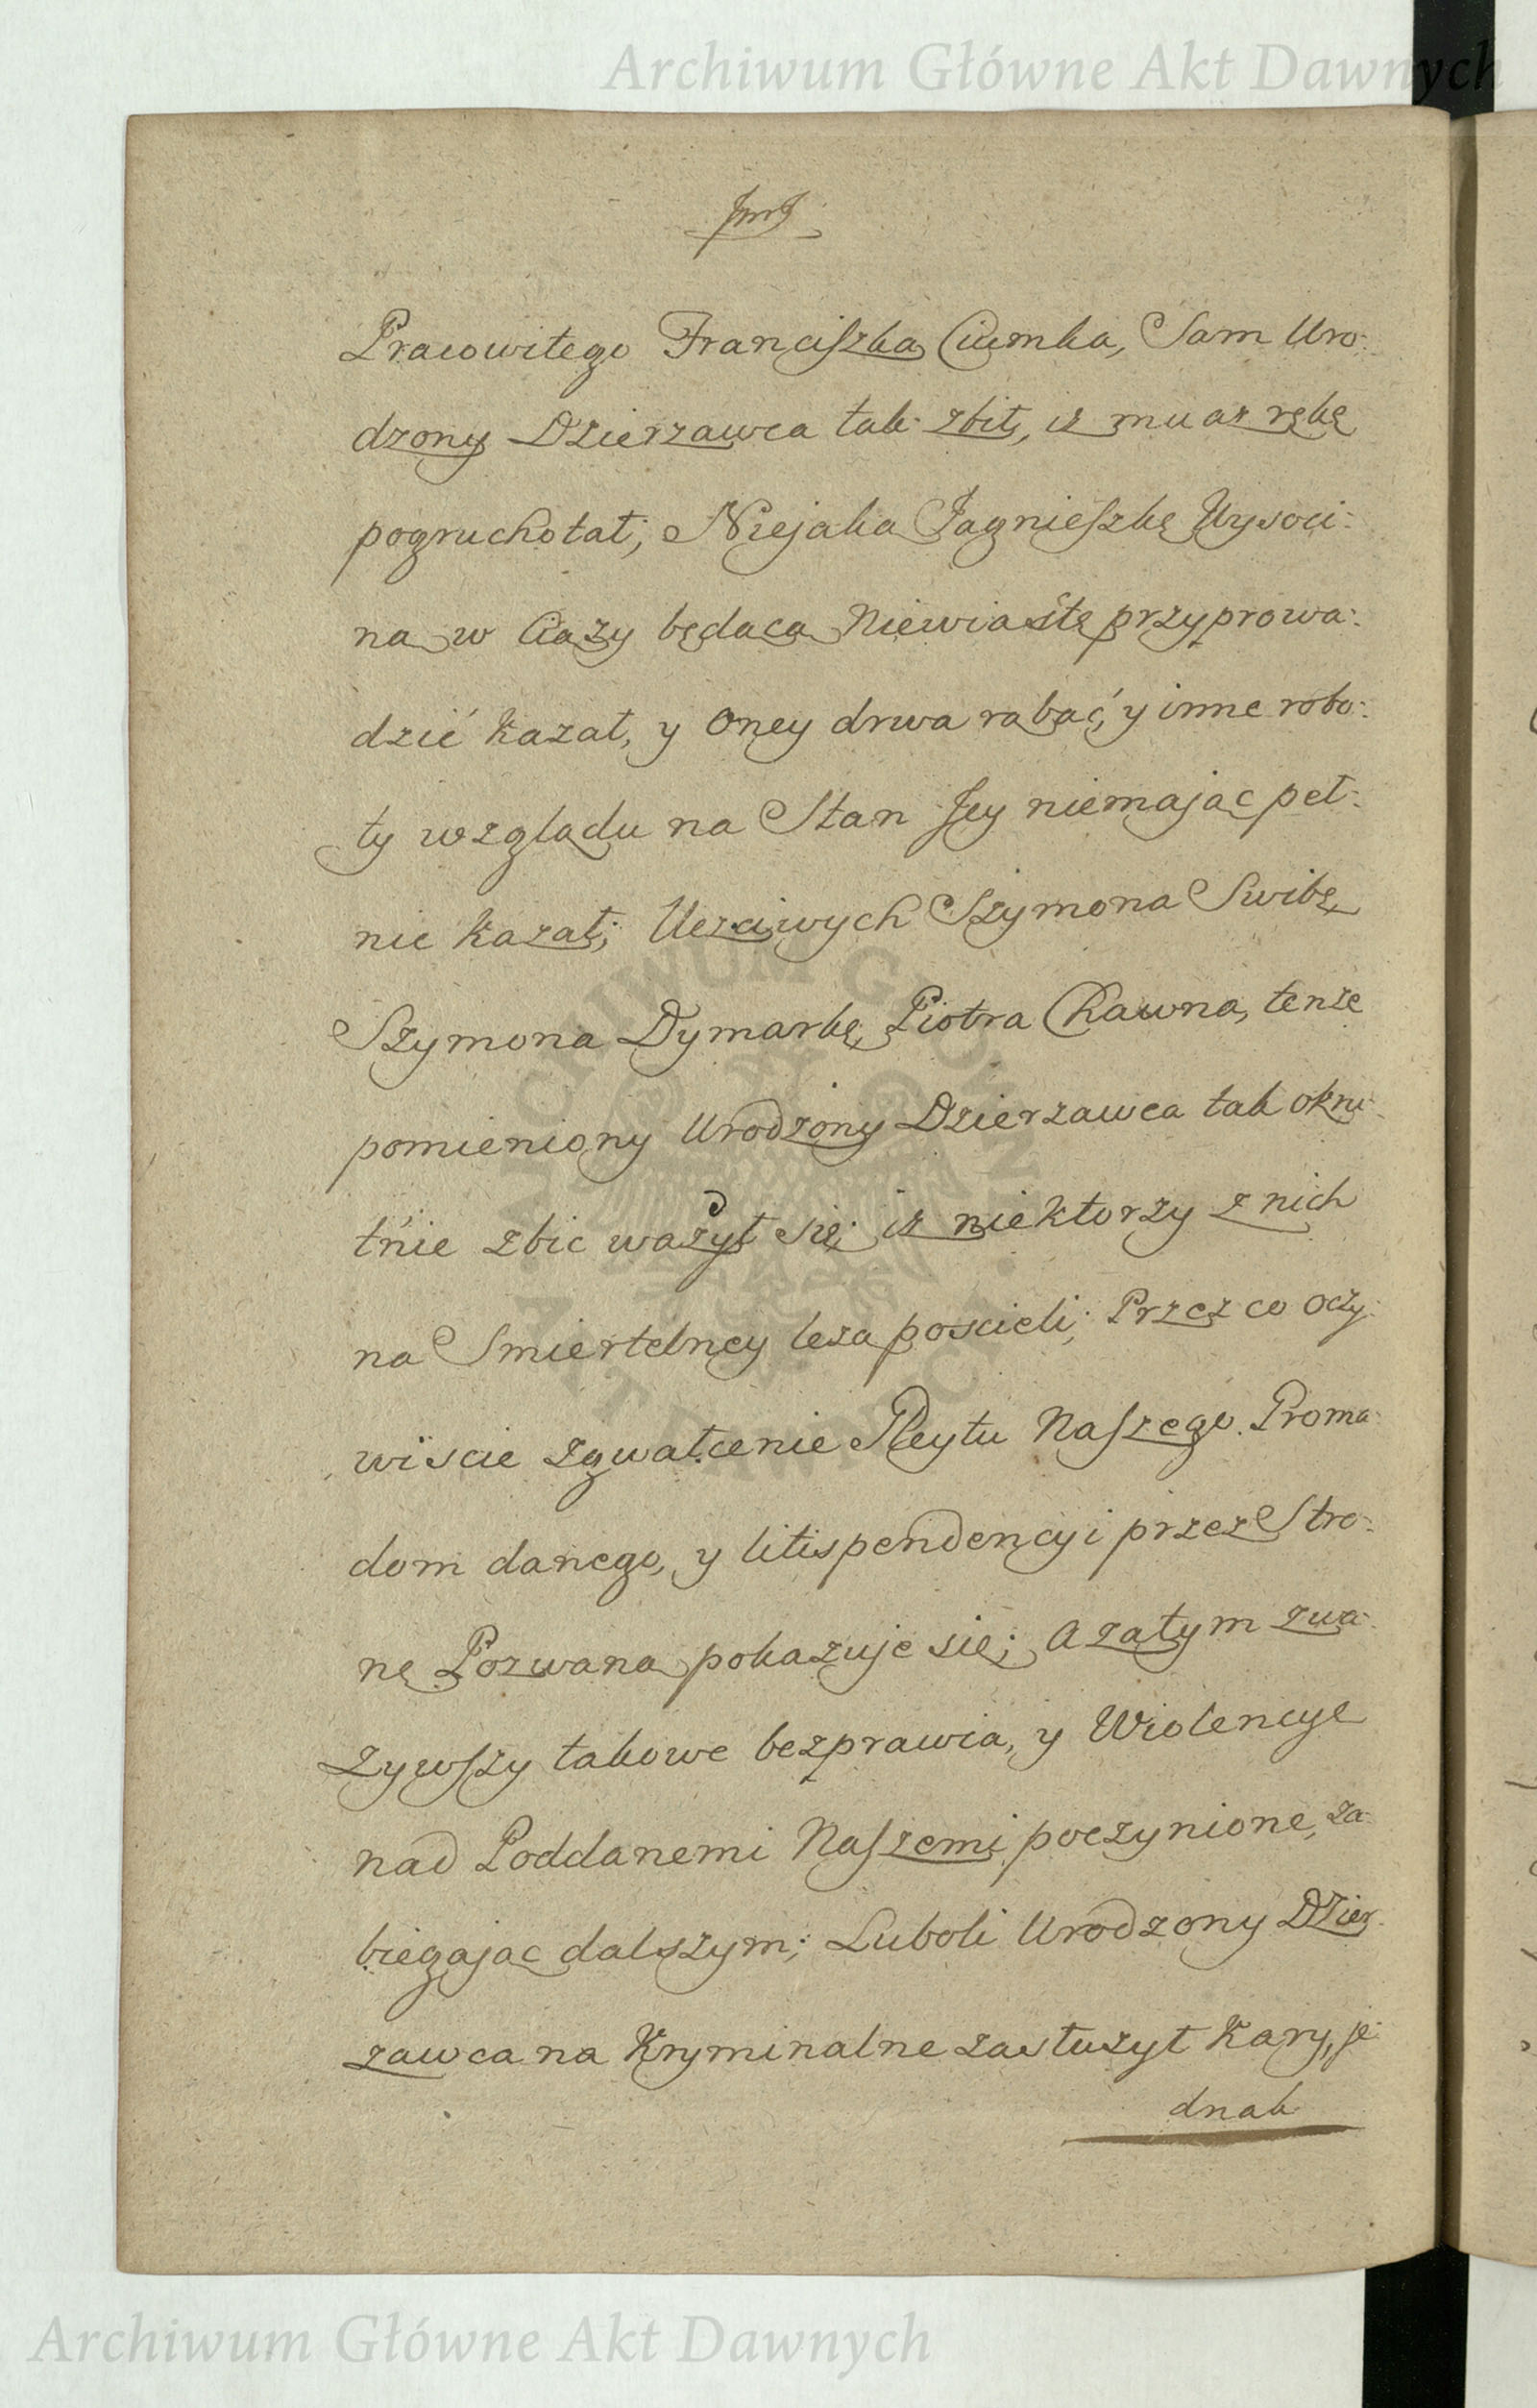 Archiwum Główne Akt Dawnych
JmJ
Pracowitego Franciszka Ciumka, Sam Uro:
dzony Dzierzawca tak zbił, iz mu az rękę
pogruchotał; Niejaka Jagnieszkę Wysoci:
na w Ciązy będąca Niewiastę przyprowa:
dzić kazał, y Oney drwa rąbać, y inne robo:
ty względu na Stan Jey niemając peł:
nic kazał; Uczciwych Szymona Swibę
Szymona Dymarkę, Piotra Chawna, tenze
pomieniony Urodzony Dzierzawca tak okru:
tnie zbic wazył się; iz niektorzy z nich
na Smiertelney lezą poscieli; Przez co oczy:
wiscie zgwałcenie Gleytu Naszego Proma:
dom danego, y litispendencyi przez Stro:
nę Pozwaną pokazuje się; a zatym zwa:
zywszy takowe bezprawia, y Wiolencye
nad Poddanemi Naszemi poczynione, za:
biegając dalszym; Luboli Urodzony Dzier:
zawca na Kryminalne zasłuzył Kary, je:
dnak
Archiwum Główne Akt Dawnych